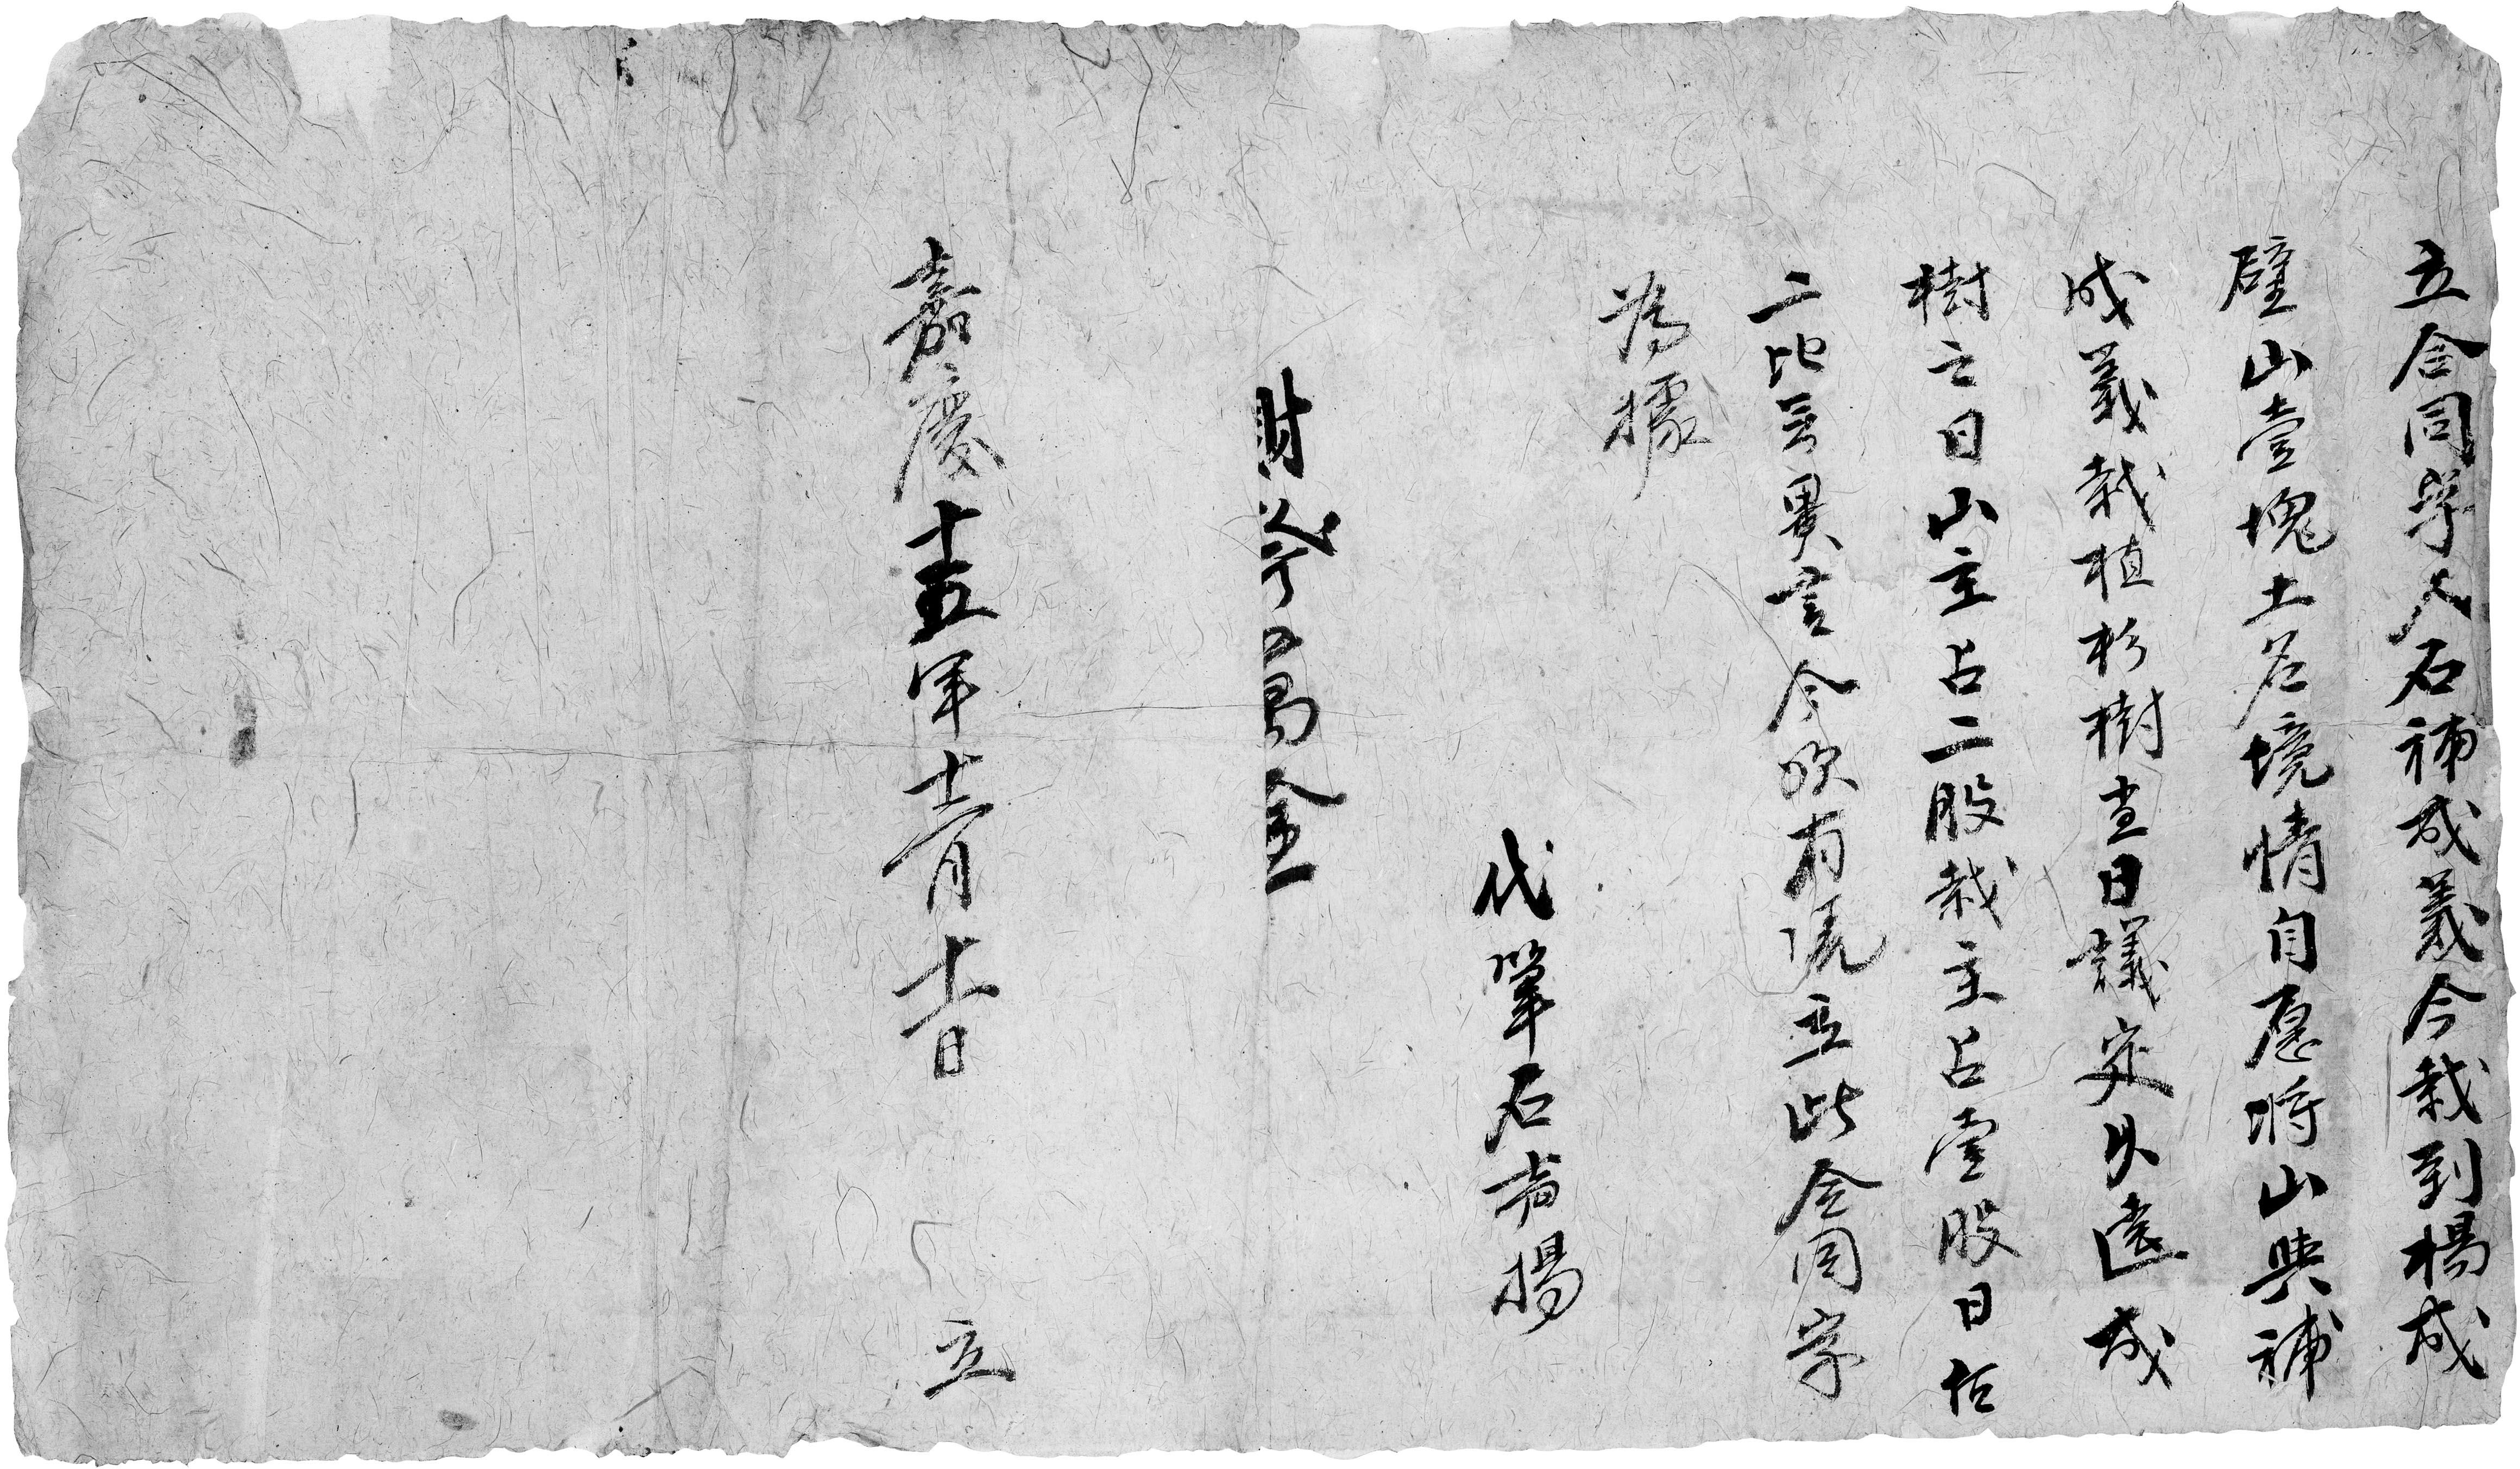 立合同字人石補成義今栽到楊成
璧山壹塊土名境情自愿将山與補
成義栽植杉樹当日議定久遠成
樹之日山主占二股栽主占壹股日后
二比无異言今欲有凭立此合同字
為據
代筆石肯揚
嘉慶十五年十二月十一日 立